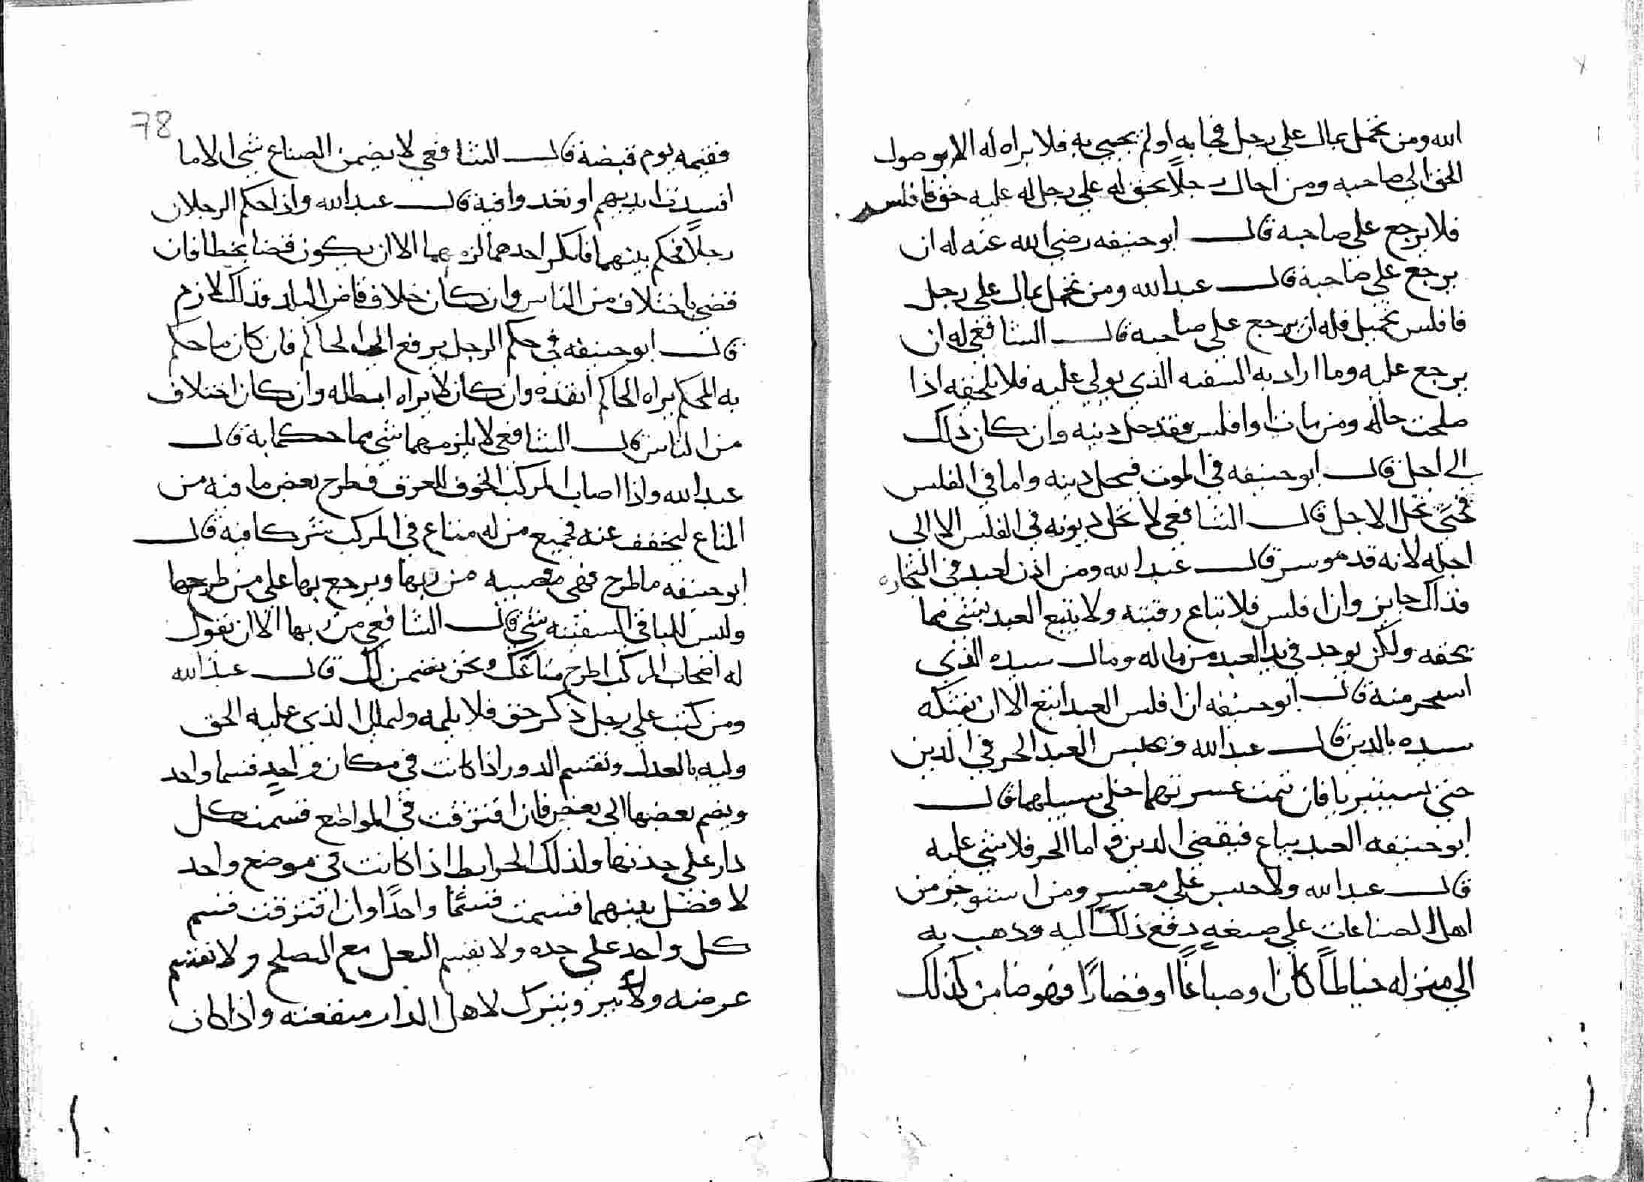 الله ومن تحمل بمال على رجل فجا به او لم يجي به فلا يراه له الا بوصول
الحق الى صاحبه ومن احال رجلا بحق له على رجل له عليه حق فافلس
فلا يرجع على صاحبه قال ابو حنيفه رضي الله عنه له ان
يرجع على صاحبه قال عبد الله ومن تحمل بمال على رجل
فافلس تحميل فله ان يرجع على صاحبه قال الشافعي له ان
يرجع عليه وما اراد به السفيه الذي يولى عليه فلا يلحقه اذا
صلحت حاله ومن مات او افلس فقد حل دينه وان كان ذلك
الى اجل قال ابو حنيفه في الموت فيحل دينه واما في الفلس
فحتى يحل الاجل قال الشافعي لا تحل ديونه في الفلس الا الى
اجله لانه قد موسر قال عبد الله ومن اذن لعبد في التجاره
فذلك جايز وان افلس فلا تباع رقبته ولا يتبع العبد بشي مما
يحقه ولكن يوخد في يد العبد من ماله ومال سيده الذي
استجر منه قال ابو حنيفه ان افلس العبد اتبع الا ان يفتكه
سيده بالدين قال عبد الله ويحبس العبد الحر في الدين
حتى يستبرا فان تمت عسرتهما خلى سبيلهما قال
ابو حنيفه العبد يباع فيقضي الدين واما الحر فلا شي عليه
قال عبد الله ولا حبس على معسر ومن استوجر من
اهل الصناعات على صنعه دفع ذلك اليه وذهب به
الى منزله خياطا كان او صباغا او قصارا فهو ضامن كذلك
78
فقيمه يوم قبضه قال الشافعي لا يضمن الصناع شي الا ما
افسدت ايديهم او تعد وافيه قال عبد الله واذا حكم الرجلان
رجلا فحكم بينهما فانكر احدهما لزمهما الا ان يكون قضا بخطا فان
قضى باختلاف من الناس وان كان خلاف قاضي البلد فذلك لازم
قال ابو حنيفه في حكم الرجل يرفع الى الحاكم فان كان ما حكم
به المحكم يراه الحاكم انفذه وان كان لا يراه ابطله وان كان اختلاف
من الناس قال الشافعي لا يلزمهما شي مما حكما به قال
عبد الله واذا اصاب المركب الخوف للغرق فطرح بعض ما فيه من
المتاع ليخفف عنه فجميع من له متاع في المركب شركا فيه قال
ابو حنيفه ما طرح فهي مصيبه من ربها ويرجع بها على من طرحها
وليس للباقي السفينه شي قال الشافعي من ربها الا ان تقول
له اصحاب المركب اطرح متاعك ونحن نضمن لك قال عبد الله
ومن كتب على رجل ذكر حق فلا يلمه وليملل الذي عليه الحق
وليه بالعدل وتقتسم الدور اذا كانت في مكان واحد قسما واحد
ويضم بعضها الى بعض فان افترقت في المواضع قسمت كل
دار على حدتها وكذلك الحوايط اذا كانت في موضع واحد
لا فضل بينهما قسمت قسما واحدا وان افترقت قسم
كل واحد على حده ولا يقسم البعل مع النضح ولا تقتسم
عرصه ولا بير ويترك لاهل الدار منفعته واذا كان